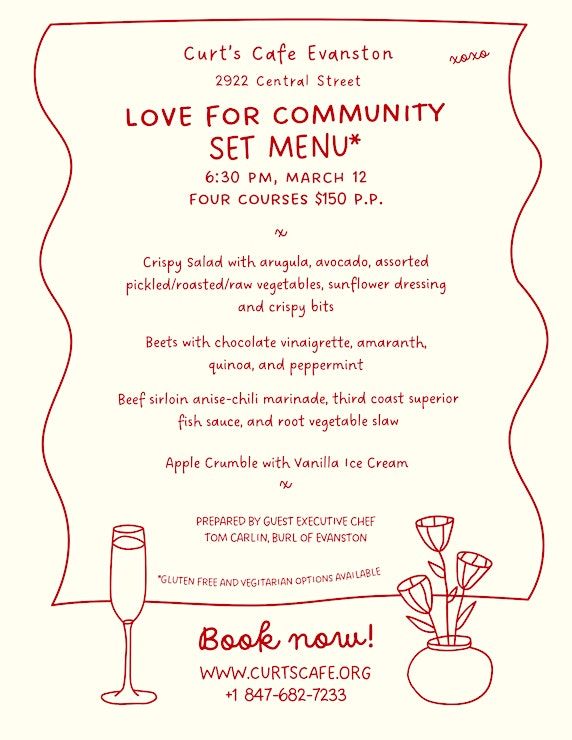 Curt's Cafe Evanston
xoxo
2922 Central Street
LOVE FOR COMMUNITY
SET MENU*
6:30 PM, MARCH 12
FOUR COURSES $150 P.P.
x
Crispy Salad with arugula, avocado, assorted
pickled/roasted/raw vegetables, sunflower dressing
and crispy bits
Beets with chocolate vinaigrette, amaranth,
quinoa, and peppermint
Beef sirloin anise-chili marinade, third coast superior
fish sauce, and root vegetable slaw
Apple Crumble with Vanilla Ice Cream
x
PREPARED BY GUEST EXECUTIVE CHEF
TOM CARLIN, BURL OF EVANSTON
*GLUTEN FREE AND VEGITARIAN OPTIONS AVAILABLE
Book now!
WWW.CURTSCAFE.ORG
+1 847-682-7233